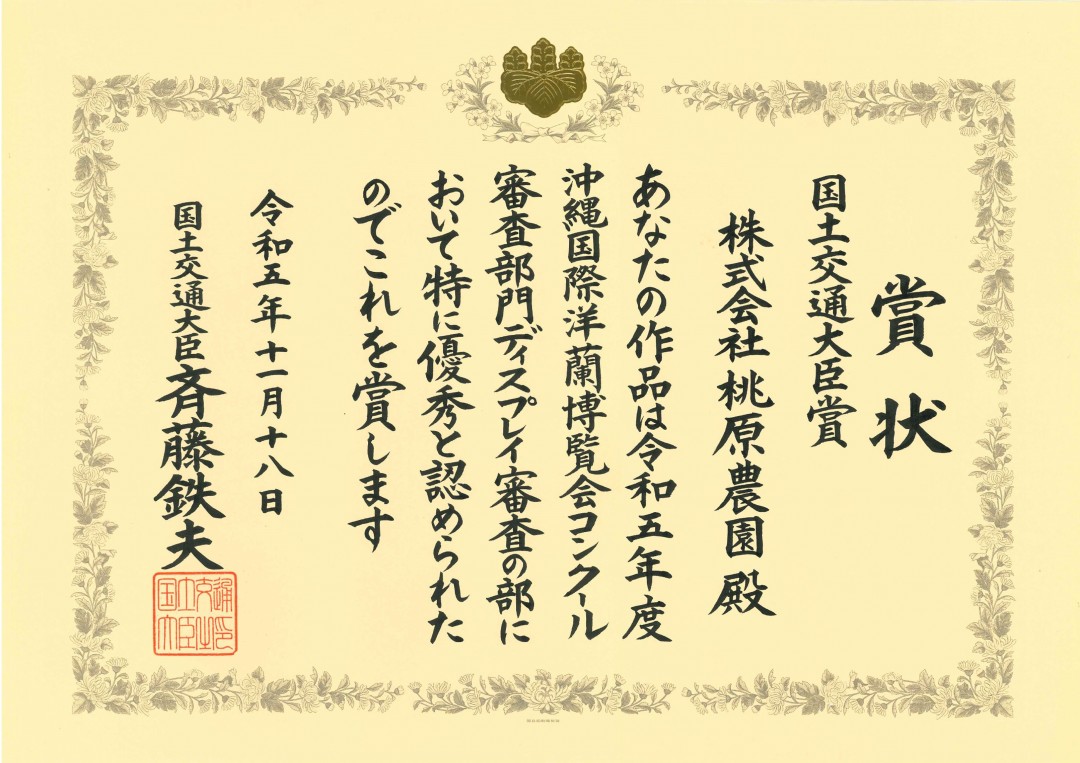 賞状
国土交通大臣賞
株式会社桃原農園殿
あなたの作品は令和五年度
沖縄国際洋蘭博覧会コンクール
審査部門ディスプレイ審査の部に
おいて特に優秀と認められた
のでこれを賞します
令和五年十一月十八日
国土交通大臣斉藤鉄夫